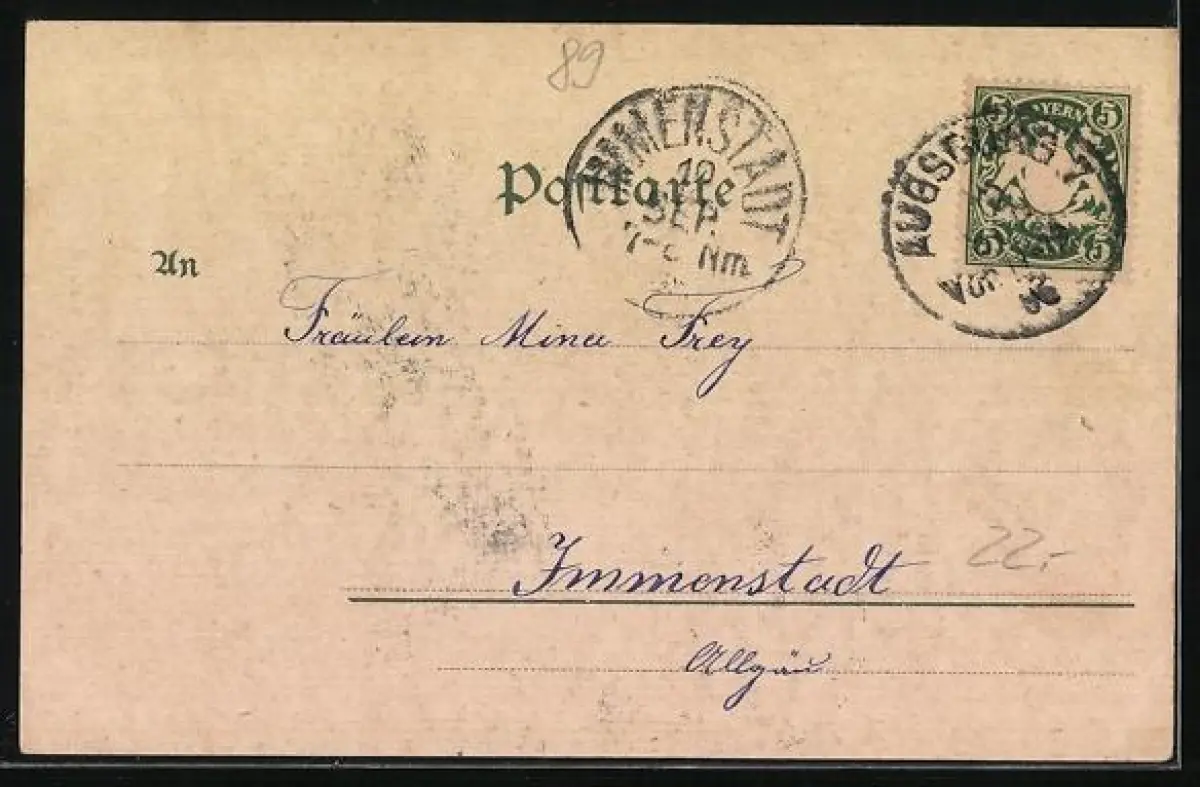 89
IMMENSTADT
10
SEP.
7-8 Nm.
5 BAYERN 5
5 5
AUGSBURG
Vorm
Postkarte
An
Fräulein Mina Frey
Immenstadt
22.-
Allgäu